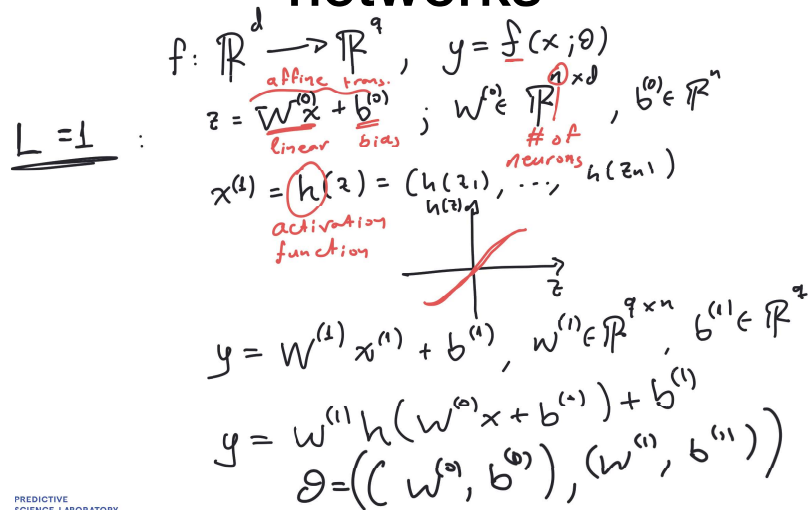 networks
f: ℝ^d → ℝ^q, y = f(x;θ)
affine trans.
z = W^(0)x + b^(0) ; W^(0) ∈ ℝ^(n×d), b^(0) ∈ ℝ^n
L=1 :
linear bias
# of neurons
x^(1) = h(z) = (h(z_1), ..., h(z_n))
activation function
h(z)
z
y = W^(1) x^(1) + b^(1), W^(1) ∈ ℝ^(q×n), b^(1) ∈ ℝ^q
y = W^(1) h(W^(0)x + b^(0)) + b^(1)
θ = ((W^(0), b^(0)), (W^(1), b^(1)))
PREDICTIVE
SCIENCE LABORATORY